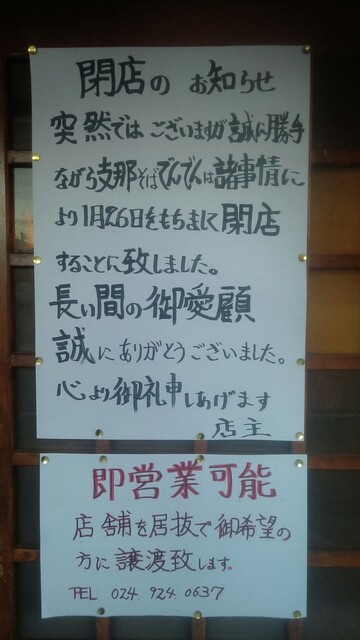 閉店の お知らせ
突然では ございますが 誠に勝手
ながら支那そばでんでんは諸事情に
より1月26日をもちまして閉店
することに致しました。
長い間の御愛顧
誠にありがとうございました。
心より御礼申しあげます
店主
即営業可能
店舗を居抜で御希望の
方に譲渡致します。
TEL 024.924.0637